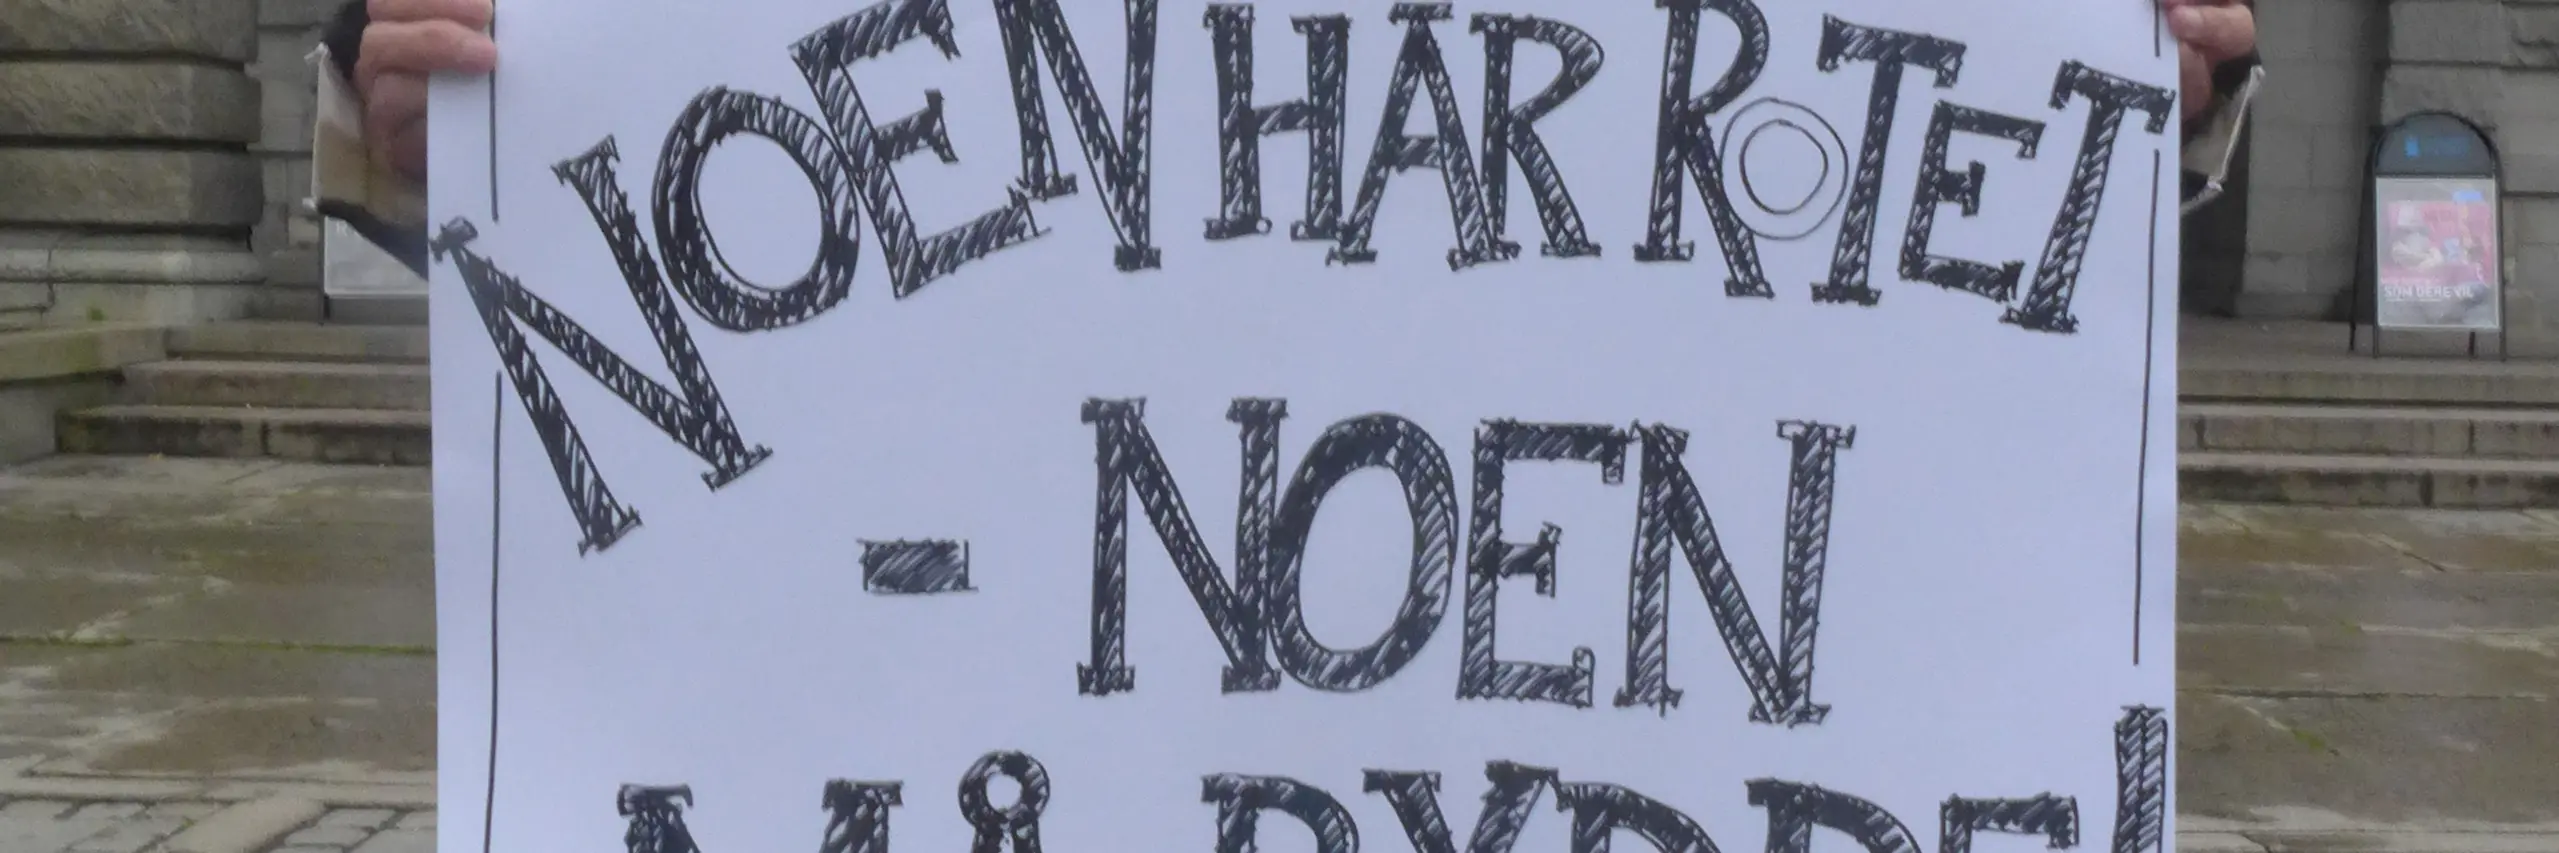 NOEN HAR ROTET
- NOEN
MÅ RYDDE!
SOM DERE VIL